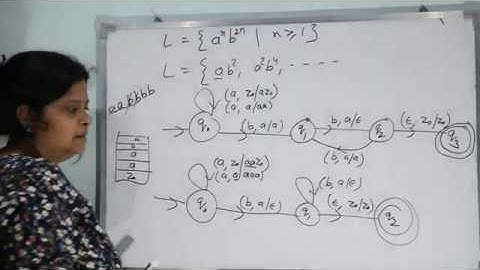 L = { aⁿb²ⁿ | n ≥ 1 }
L = { ab², a²b⁴, - - - -
aabbbb
(a, z₀/az₀)
(a, a/aa)
q₀
(b, a/a)
q₁
(b, a/ε)
q₂
(ε, z₀/z₀)
q₃
(b, a/a)
a
a
a
z₀
(a, z₀/aaz₀)
(a, a/aaa)
q₀
(b, a/ε)
q₁
(b, a/ε)
(ε, z₀/z₀)
q₂